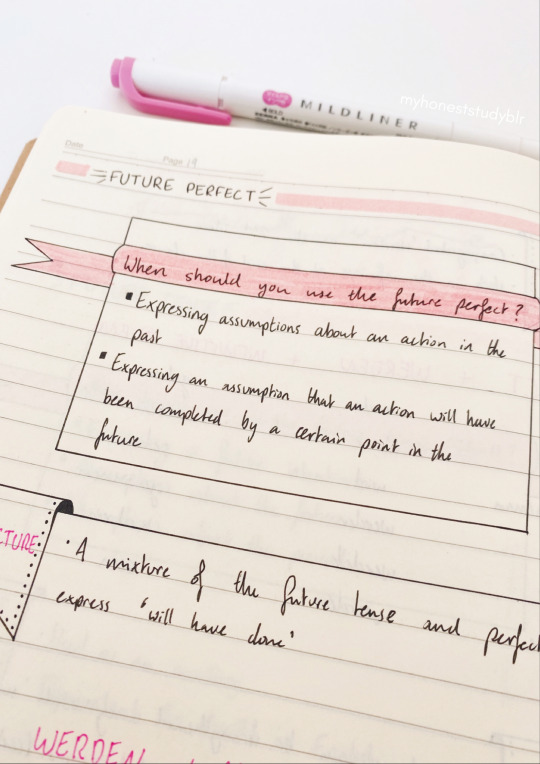 MILDLINER
myhoneststudyblr
Date
Page 19
FUTURE PERFECT
When should you use the future perfect?
▪ Expressing assumptions about an action in the
past
▪ Expressing an assumption that an action will have
been completed by a certain point in the
future
CTURE:
· A mixture of the future tense and perfect
express 'will have done'
WERDEN